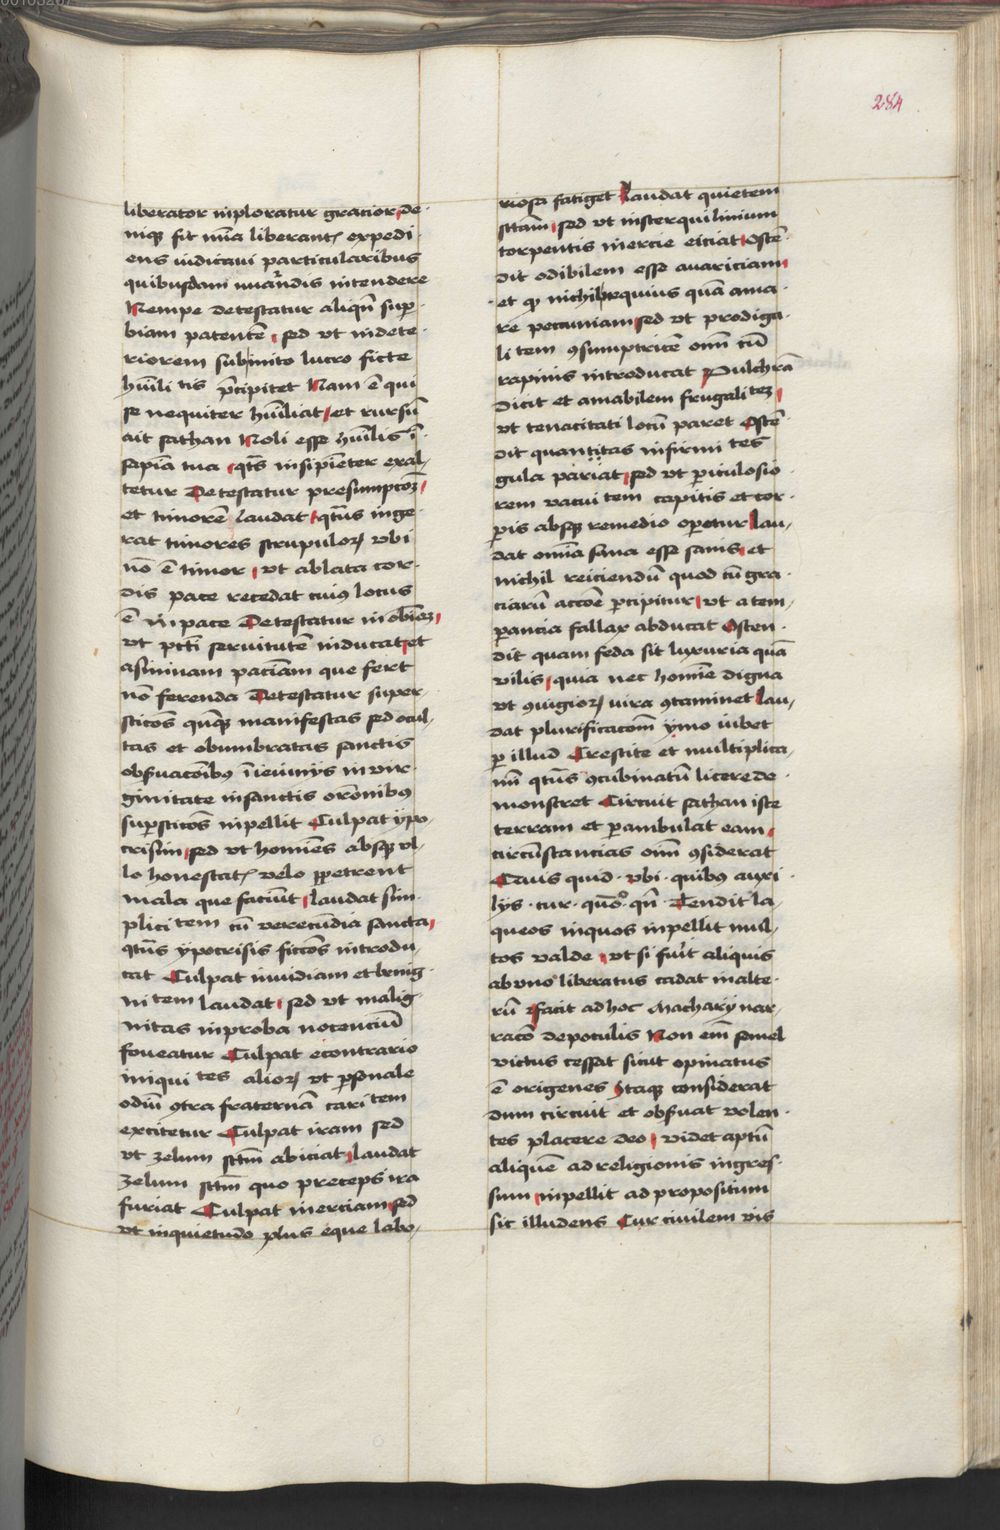 284
liberator inploratur gracior De
niqꝫ fit mīa liberantꝭ expedi
ens iudicaui particularibus
quibusdam iuuandis intendere
Nempe detestatur aliqn̄ sup
biam patentē sed vt in dete
riorem subinito lucro ficte
hūili tis p̄cipitet Nam ē qui
se nequiter hūiliat et rursū
ait sathan Noli esse hūilis ī
sapīa tua qt̄s insipiēter exal
tetur Detestatur presumpcōꝫ
et timorē laudat qt̄us inge
rat timores scrupuloꝝ vbi
nō ē timor vt ablata cor
dis pace recedat cuiꝰ locus
ē in pace Detestatur inobīaꝫ
vt pcti seruitutē inducat et
asininam paciam que fert
nō ferenda Detestatur super
sticōs quasqꝫ manifestas sed ocul
tas et obumbratas sanctis
obẜuacōibꝰ ī ieiunijs in vir
ginitate in sanctis orōnibꝰ
suꝑsticōs inpellit Culpat ypo
crisim sed vt homīes absqꝫ vl
lo honestatꝭ velo ꝑpetrent
mala que faciūt laudat sim
plici tem cū verecūdia sancta
qt̄us ypocrisis fictōs introdu
cat Culpat inuidiam et benig
ni tem laudat sed vt malig
nitas inproba nocenciū
foueatur Culpat econtrario
iniqui tes alioꝝ vt ꝑsonale
odiū ꝯtra fraternā cari tem
excitetur Culpat iram sed
vt zelum sctm̄ abiciat laudat
zelum sctm̄ quo preceps ira
furiat Culpat inerciam sed
vt inquietudo plus eque labo
riosa fatiget Laudat quietem
sctam sed vt in sterquilinium
torpentis inercie eiciat Ostē
dit odibilem esse auariciam
et qꝫ nichil nequius quā ama
re pecuniam sed vt prodiga
li tem ꝯsumptricē om̄i cū
rapinis introducat Pulchrā
dicit et amabilem frugali teꝫ
vt tenacitati locū paret Ostē
dit quantitas infirmi tes
gula pariat sed vt ꝑiculosio
rem vacui tem capitis et cor
ꝑis absqꝫ remedio oꝑetur Lau
dat omīa sana esse sanis et
nichil reiciendū quod cū gra
ciarū accōe ꝑcipitur vt a tem
ꝑancia fallax abducat Osten
dit quam feda sit luxuria quā
vilis quia nec homīe digna
vt ꝯiugioꝝ iura ꝯtaminet Lau
dat plurificacōm ymo iubet
ꝑ illud Crescite et multiplica
mī qt̄us ꝯcubinatū licere de
monstret Circuit sathan iste
terram et ꝑambulat eam
circūstancias oīm ꝯsiderat
Quis quid vbi quibꝰ auxi
lijs cur quōꝰ qn̄ Tendit la
queos in quos inpellit mul
tos valde vt si fuit̉ aliquis
ab vno liberatus cadat in alte
rū Facit ad hoc Macharij nar
racō de poculis Non em̄ semel
victus cessat sicut opinatus
ē origenes Itaqꝫ considerat
dum circuit et obẜuat volen
tes placere deo videt aptū
aliquē ad religionis ingres
sum inpellit ad propositum
sic illudens Cur ciuilem vis